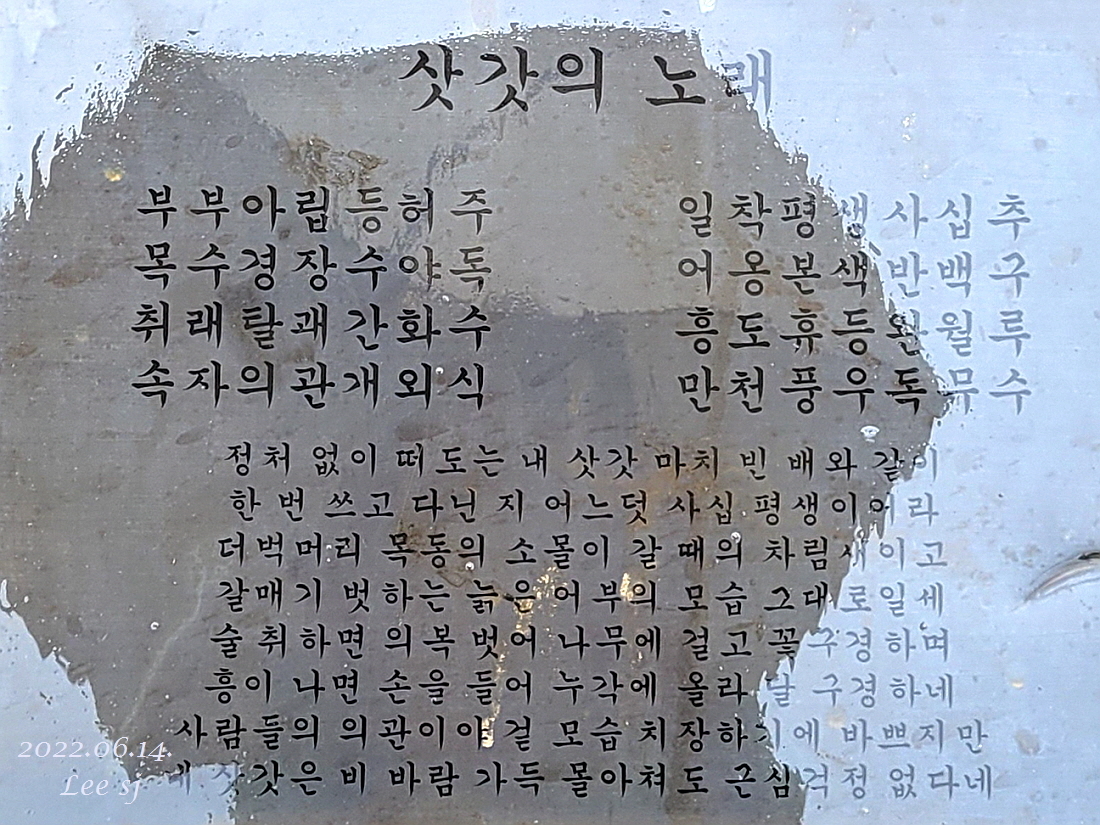 삿갓의 노래
부부아립등허주 일착평생사십추
목수경장수야독 어옹본색반백구
취래탈괘간화수 흥도휴등완월루
속자의관개외식 만천풍우독무수
정처 없이 떠도는 내 삿갓 마치 빈 배와 같이
한 번 쓰고 다닌 지 어느덧 사십 평생이어라
더벅머리 목동의 소몰이 갈 때의 차림새이고
갈매기 벗하는 늙은 어부의 모습 그대로일세
술 취하면 의복 벗어 나무에 걸고 꽃 구경하며
흥이 나면 손을 들어 누각에 올라 달 구경하네
사람들의 의관이야 겉 모습 치장하기에 바쁘지만
내 삿갓은 비 바람 가득 몰아쳐도 근심걱정 없다네
2022.06.14.
Lee sj